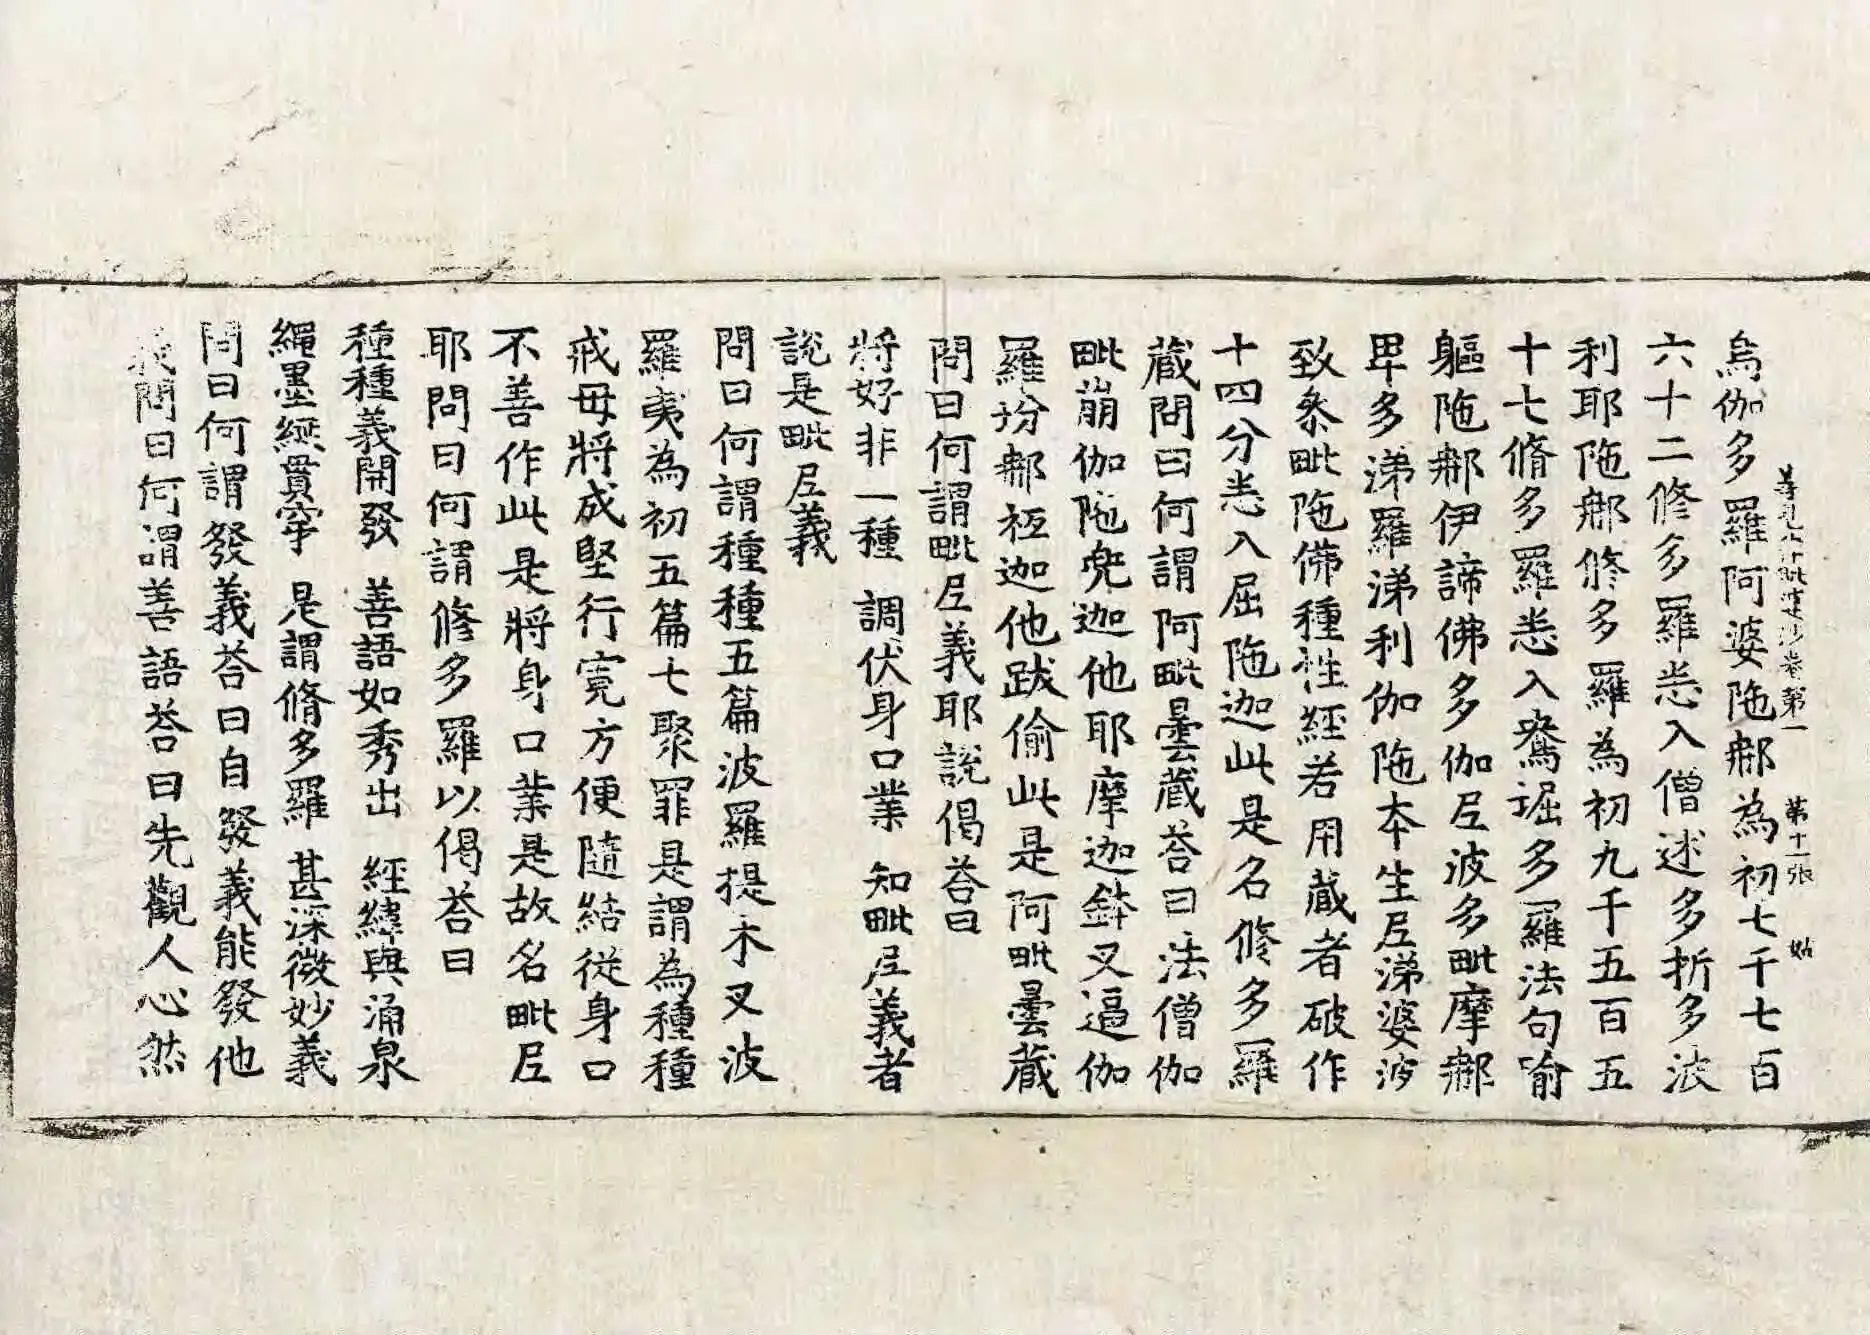 善見毗婆沙卷第一 第十一張 始
烏伽多羅阿婆陁𨚗為初七千七百
六十二修多羅悉入僧述多折多波
利耶陁𨚗修多羅為初九千五百五
十七脩多羅悉入鴦堀多羅法句喻
軀陁𨚗伊諦佛多伽尼波多毗摩𨚗
卑多涕羅涕利伽陁本生尼涕婆波
致叅毗陁佛種性經若用藏者破作
十四分悉入屈陁迦此是名修多羅
藏問曰何謂阿毗曇藏荅曰法僧伽
毗崩伽陁兜迦他耶摩迦鉢叉逼伽
羅坋𨚗祇迦他跋偷此是阿毗曇藏
問曰何謂毗尼義耶說偈荅曰
將好非一種 調伏身口業 知毗尼義者
說是毗尼義
問曰何謂種種五篇波羅提木叉波
羅夷為初五篇七聚罪是謂為種種
戒毋將成堅行寬方便隨結從身口
不善作此是將身口業是故名毗尼
耶問曰何謂修多羅以偈荅曰
種種義開發 善語如秀出 經緯與涌泉
繩墨綖貫穿 是謂脩多羅 甚深微妙義
問曰何謂發義荅曰自發義能發他
義問曰何謂善語荅曰先觀人心然